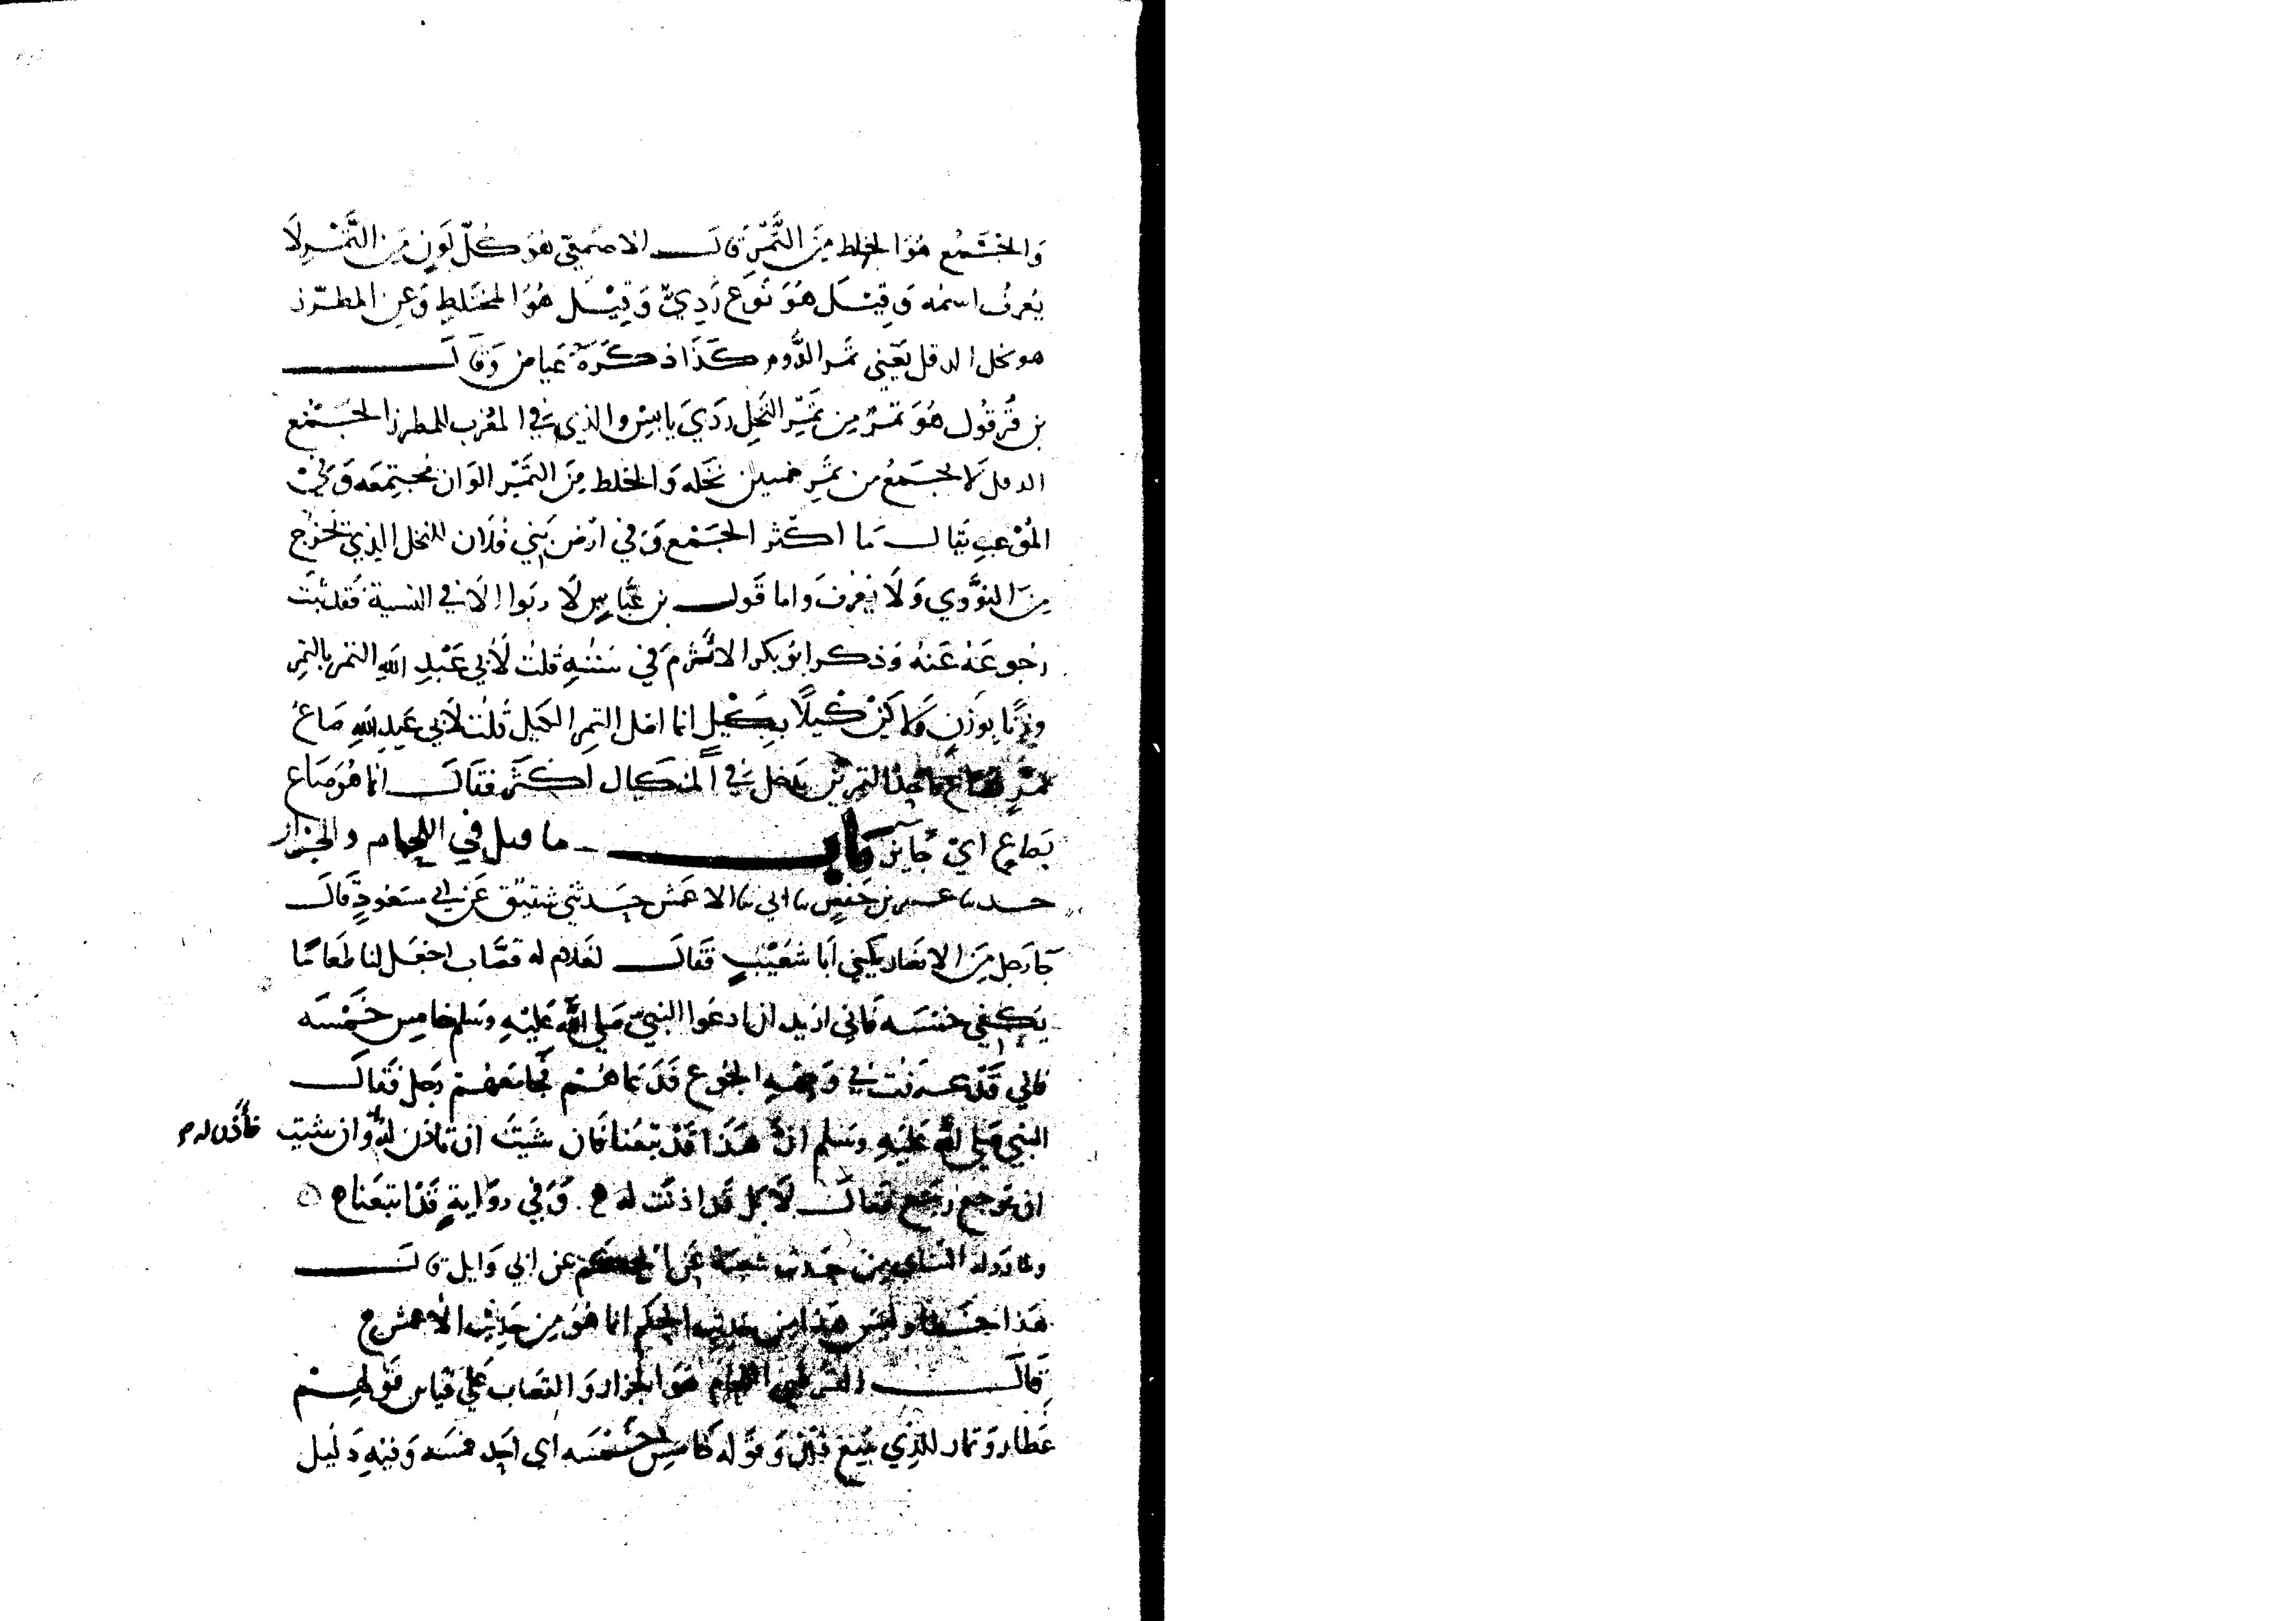 وَالجَمْعُ هُوَ الخلط مِنَ التَّمْرِ قَالَ الاصمعِيّ هُوَ كُلّ لَونٍ مِنَ التَّمْرِ لَا
يُعرفُ اسمُه وَقِيْلَ هُوَ نَوعَ رَدِيّ وَقِيْلَ هُوَ المختَلِط وَعِن المطرّز
هو نخل الدقل يَعْنِي ثمر الدُّوم كَذَا ذكَرَهُ عَيَاض وَقَالَ
بن قُرقُول هُوَ تمرٌ مِن ثَمَرِ النَّخلِ رَدِيَ يابسٌ والذي فِي المغْرب للمطرز الجَمْع
الدقل لَا يجمَعُ من ثَمَرِ خمسين نَخْله وَالخلط مِنَ التَّمْرِ الوَان مُجْتمِعَه وَفِي
المُوْعبِ يُقال مَا اكْثر الجَمْع وَفي ارْض بَنِي فُلَان للنخل الذِي يَخرج
مِنَ النوَّوي وَلَا يُعْرفَ واما قَول بن عَبّاسٍ لَا رِبَوا الا في النسية فَقَد ثَبَتَ
رُجُوعَهُ عَنْهُ وَذكر ابُو بكر الاثْرَم في سُنَنِهِ قُلْتُ لأبي عَبْدِ اللهِ التمْر بِالتمِر
وزنًا بوَزنٍ قَالَ لَا وَلَكِن كَيْلًا بِكَيْلٍ انما اصْل التمِر الكيل قُلْت لأبي عَبدِ اللهِ صَاعُ
تمرٍ بصاعٍ واحد التمرين يدخل فِي المكيال اكثر فقَالَ انما هُوَ صَاع
بَصاعٍ ايْ جَائز بَابُ ما قيل في اللحام والجزار
حدثنا عمر بن حَفْصٍ نا ابي نا الاعمَش حَدثني شَقِيْق عَن ابي مَسَعُودٍ قَالَ
جَآ رَجل مِنَ الانصار يُكْنى أبَا شُعَيْبٍ فَقَالَ لغَلام له قصَّاب اجْعَل لنا طَعَامًا
يَكفي خمسَه فَاني اريد ان ادعَوا النبيّ صَلى اللَّه عَلَيْهِ وَسَلم خامِس خَمْسَه
فاني قَدْ عرفت في وَجهِهِ الجُوع فَدَعَاهُمْ فجَا مَعَهُمْ رَجل فَقَالَ
النبي صَلى الله عَلَيْهِ وسَلم انّ هَذَا قَدْ تبْعُنا فَان شيتَ ان تاذن لَهُ وان شيت فأذَن له م
ان يَرجع رَجَع فقَالَ لَا بَل قَد اذنْت له ح وَفِي روَايةٍ قَدْ اتبَعَنا ح
وَلما رواه النسَاي مِن حَديْث شعبَة عَن الحكَم عن ابي وَايل قَالَ
هَذَا خَطا وليس هَذا من حديْث الحكَم انما هُوَ مِن حَدِيْث الأعمش ح
قَالَ القرطبي اللحام هُوَ الجزار وَالقصَاب عَلى قيَاس قَوْلهِمْ
عَطار وَتمار للذِي يَبيْع ذلك وَقَوْله خامسِ خَمْسَه اي احَد خمسَه وَفيْهِ دَلِيل